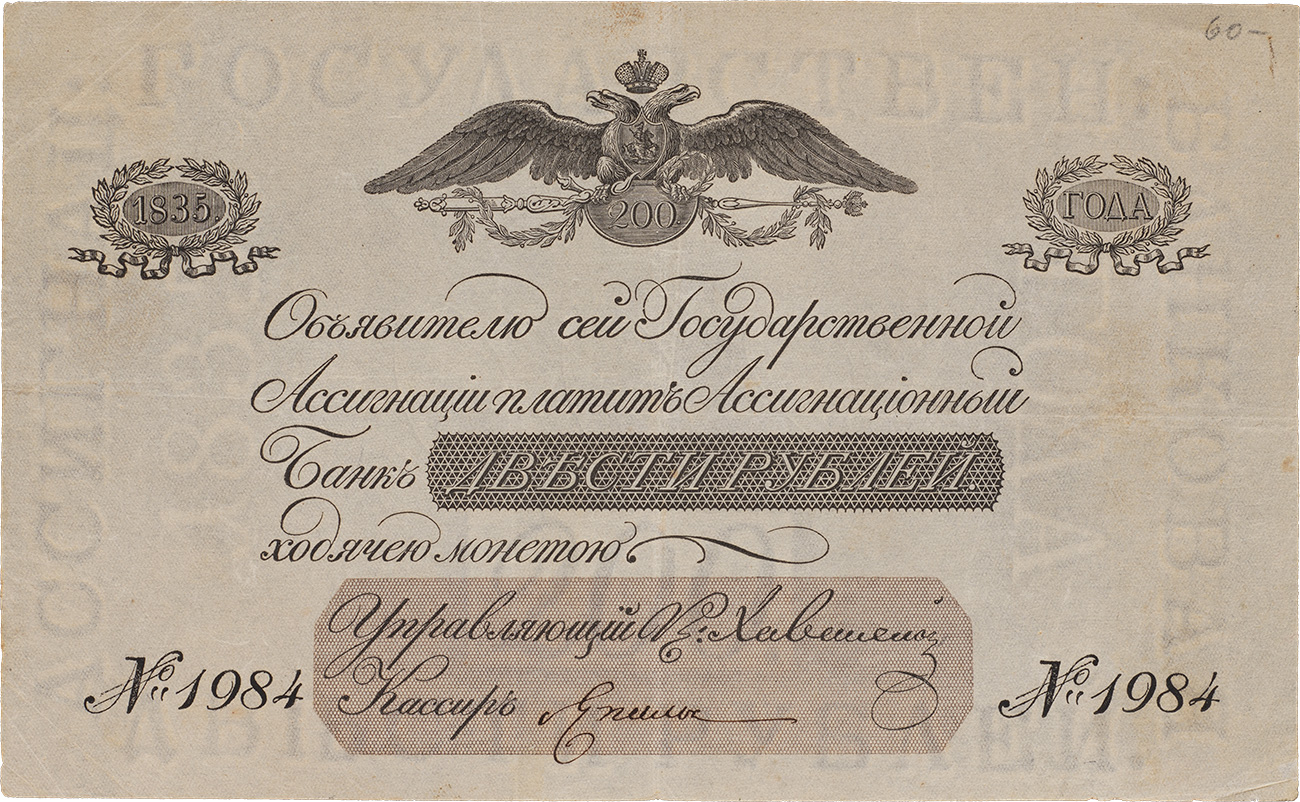 60-
200
1835.
ГОДА
Объявителю сей Государственной
Ассигнаціи платитъ Ассигнаціонный
Банкъ ДВѢСТИ РУБЛЕЙ.
ходячею монетою
Управляющій
Кассиръ
№ 1984
№ 1984